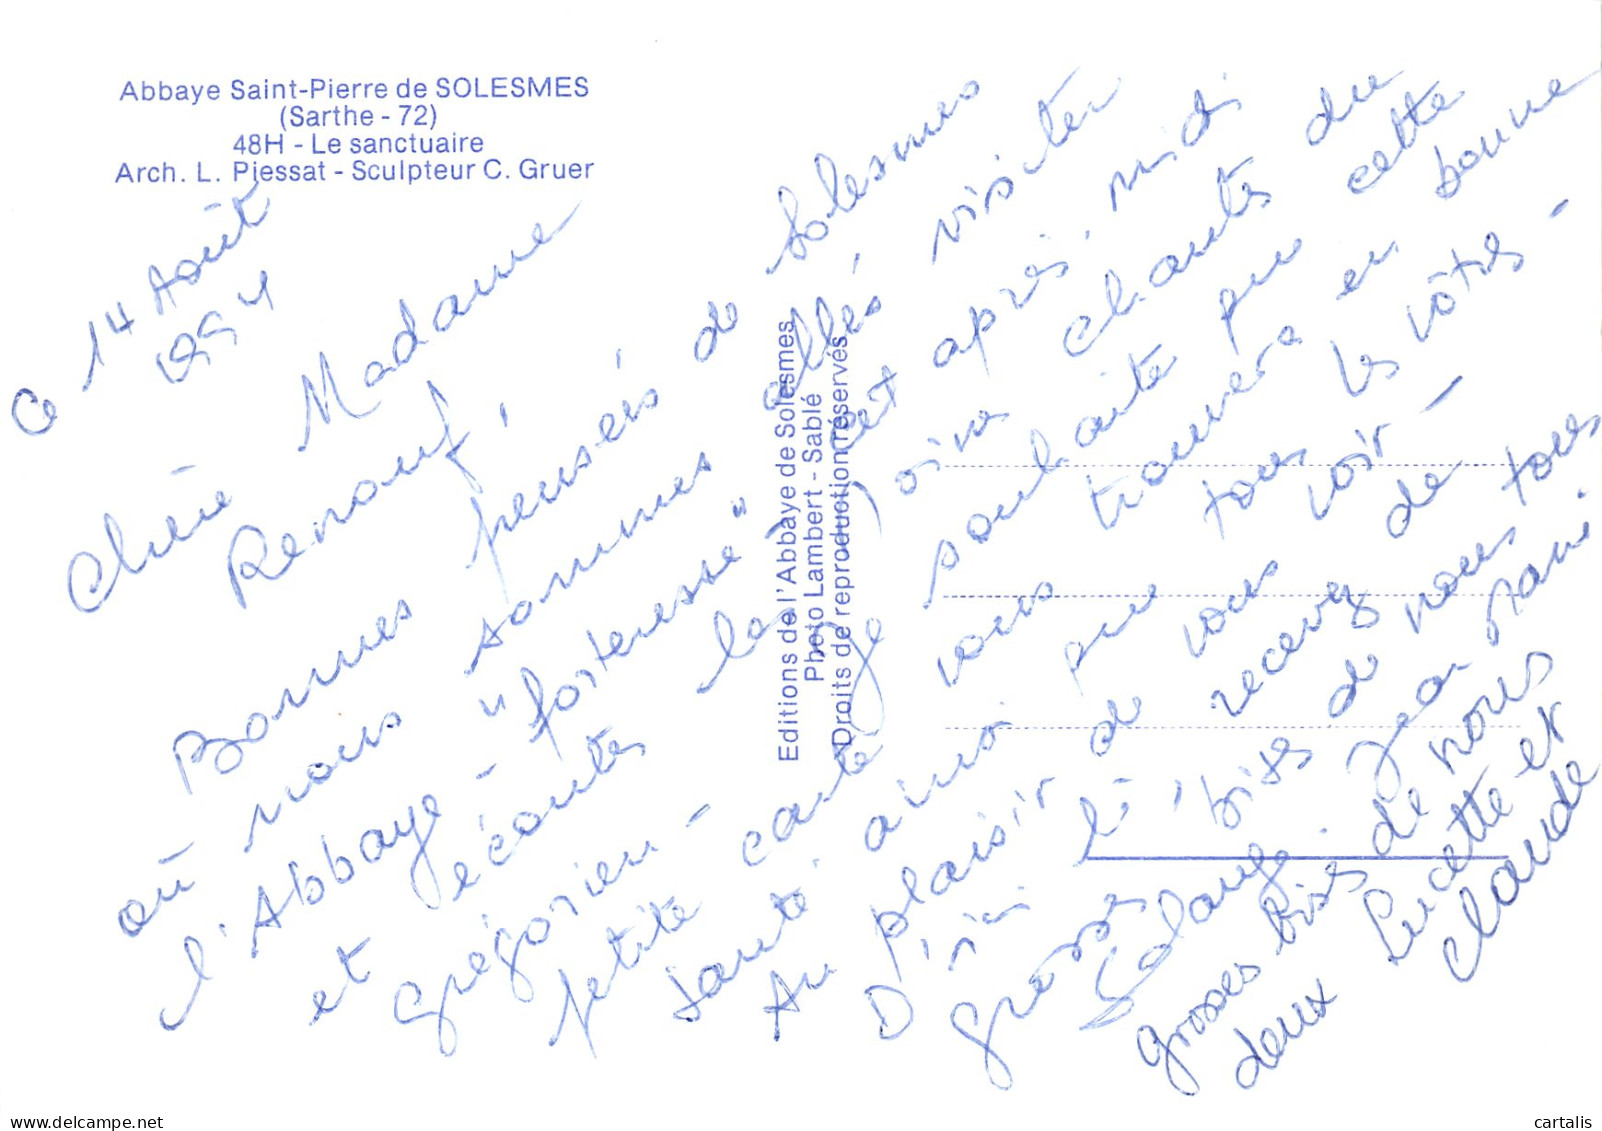 Abbaye Saint-Pierre de SOLESMES
(Sarthe - 72)
48H - Le sanctuaire
Arch. L. Piessat - Sculpteur C. Gruer
Editions de l'Abbaye de Solesmes
Photo Lambert - Sablé
Droits de reproduction réservés
Ce 14 Août
1994
Chère Madame
Renouf,
Bonnes pensées de Solesmes
où nous sommes allés, visiter
l'Abbaye - "forteresse" cet après, midi
et écoutés les chants du
grégorien - que cette
petite carte vous trouvera en bonne
santé ainsi que tous les vôtres -
Au plaisir de vous voir -
D'ici là, recevez de tous
grosses bises de nous tous
Solange Jean
grosses bises de nous
deux Lucette et
Claude
www.delcampe.net
cartalis